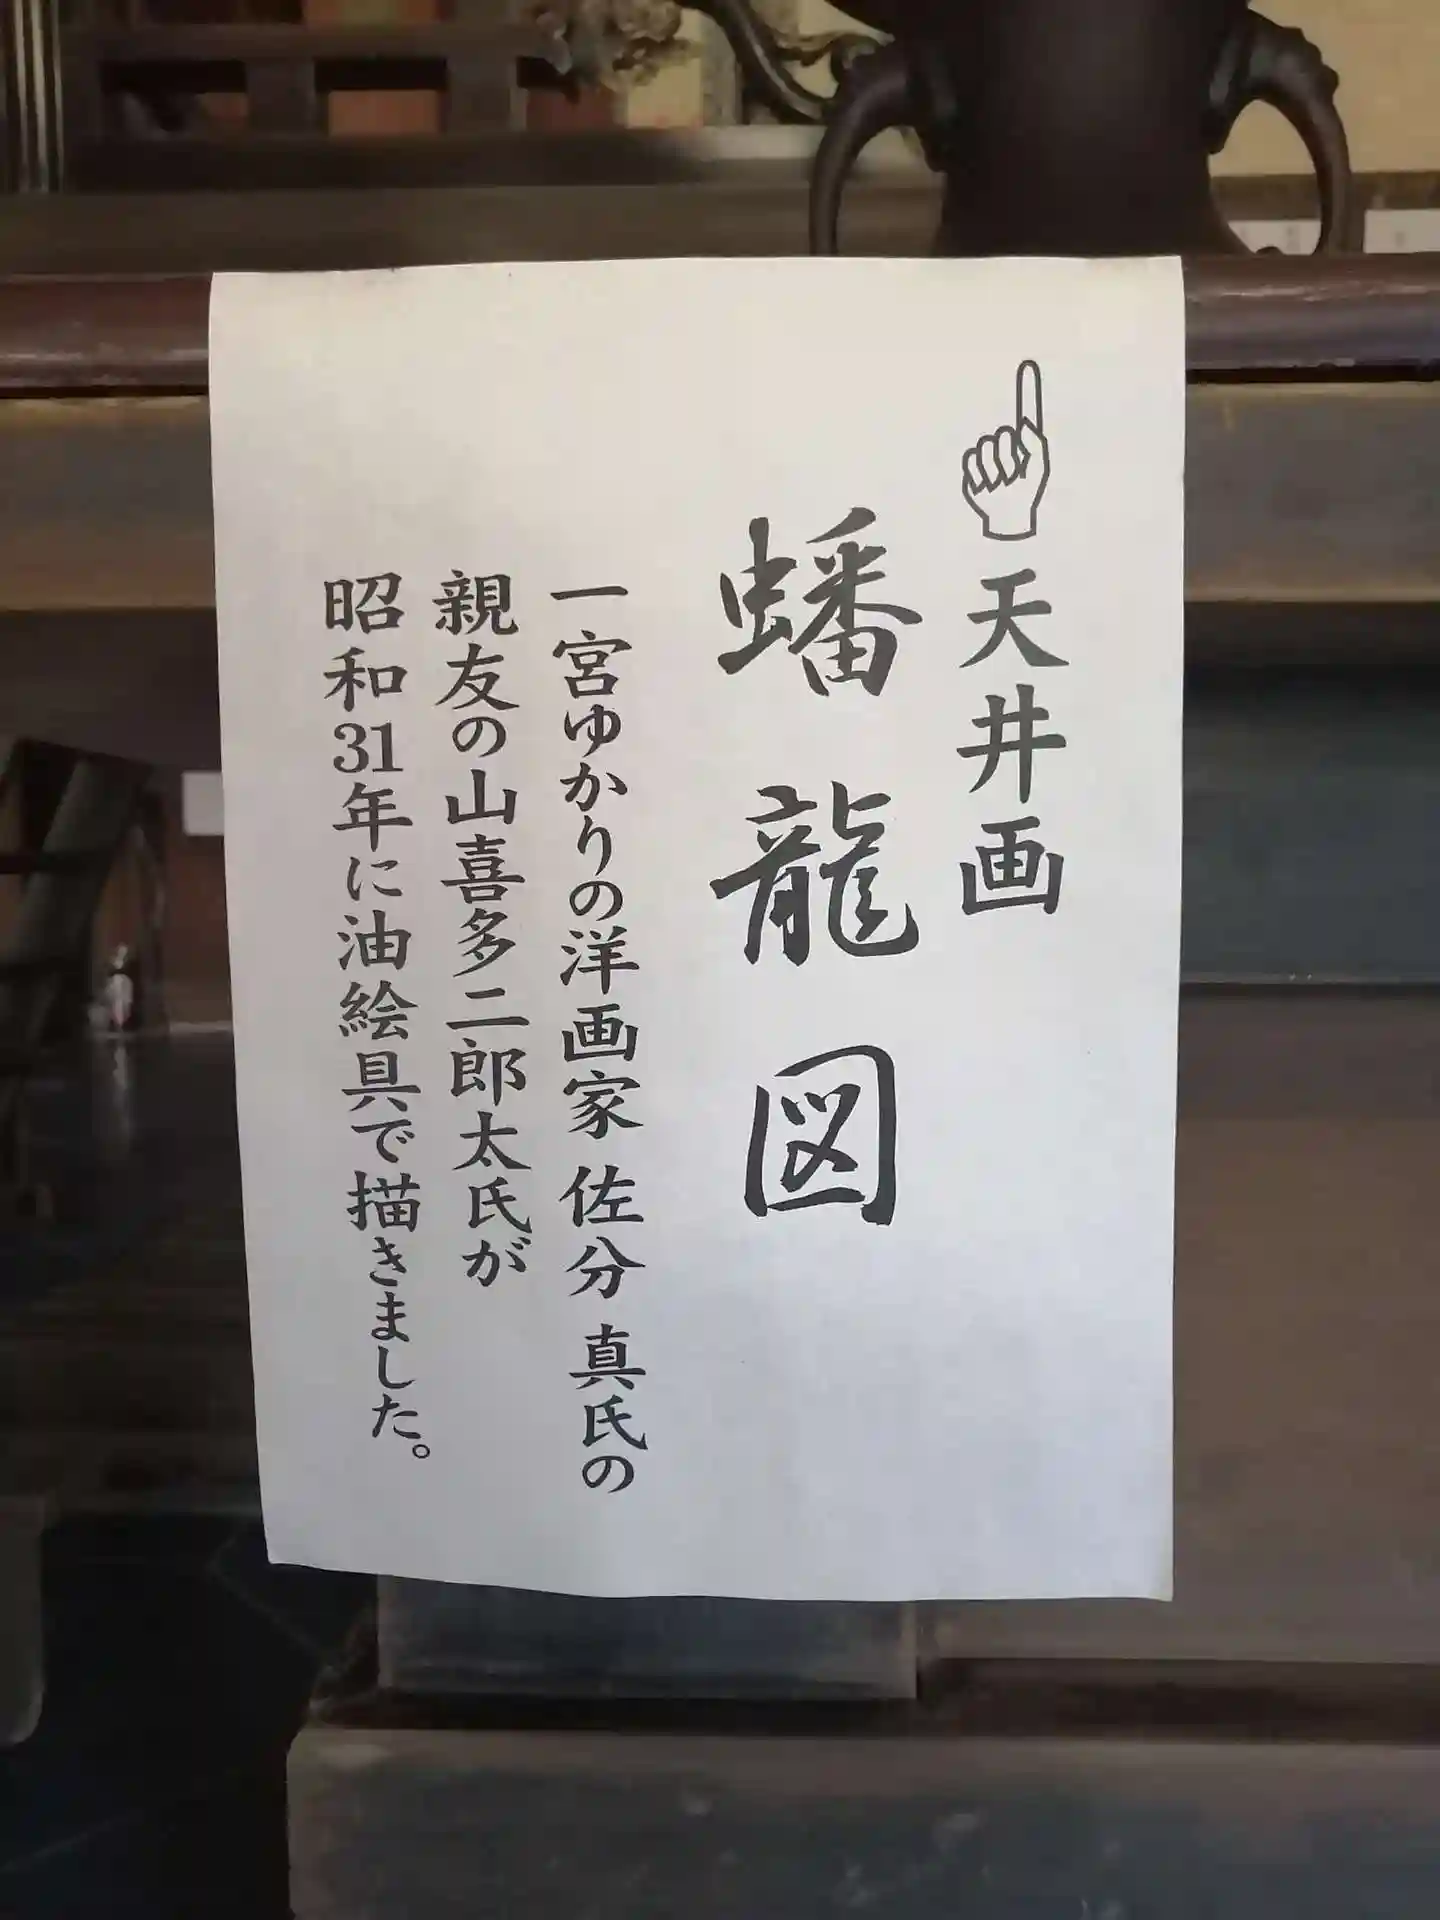 天井画
蟠龍図
一宮ゆかりの洋画家 佐分 真氏の
親友の山喜多二郎太氏が
昭和31年に油絵具で描きました。